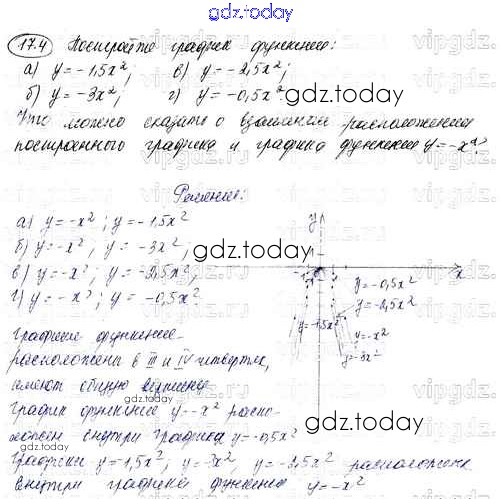 gdz.today
17.4 Постройте график функции:
а) y=-1,5x²; в) y=-2,5x²;
б) y=-3x²; г) y=-0,5x²
gdz.today
Что можно сказать о взаимном расположении
построенного графика и графика функции y=-x²?
Решение:
а) y=-x²; y=-1,5x²
б) y=-x²; y=-3x²
gdz.today
в) y=-x²; y=-2,5x²
г) y=-x²; y=-0,5x²
y
x
-1
y=-0,5x²
y=-2,5x²
y=-1,5x²
y=-x²
y=-3x²
Графики функции
расположены в III и IV четвертях,
имеют общую вершину
График функции y=-x² распо-
ложен внутри графика y=-0,5x²
gdz.today
Графики y=-1,5x², y=-3x², y=-2,5x² расположены
внутри графика функции y=-x²
gdz.today